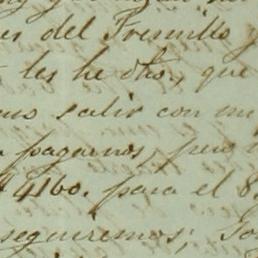 del Fresnillo y
les he dho, que
salir con mi
pagarnos, pero
4160. para el 8
seguiremos;